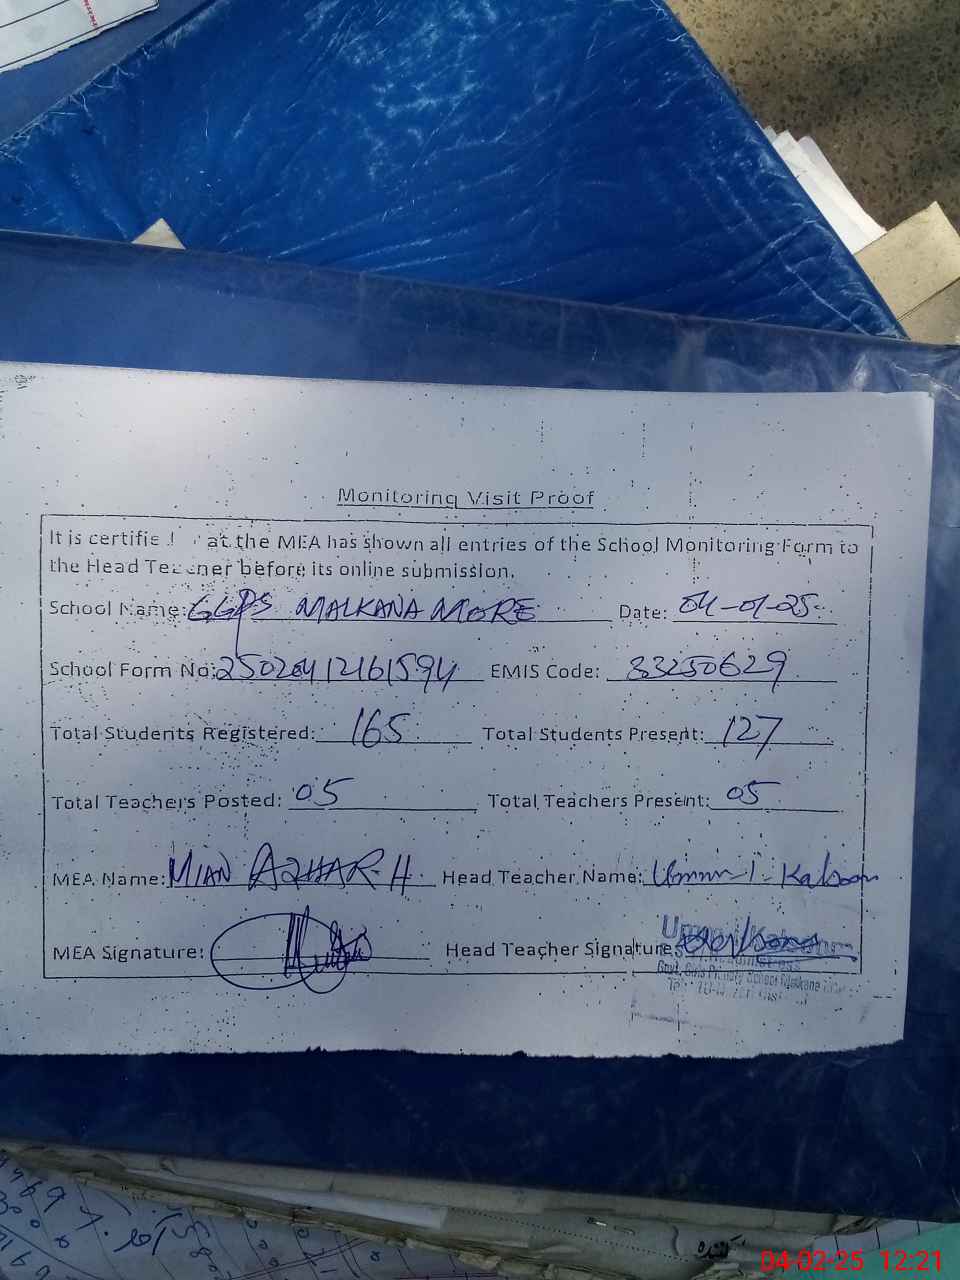 Monitoring Visit Proof
It is certifie at the MEA has shown all entries of the School Monitoring Form to
the Head Teacher before its online submission.
School Name: GGPS MALKANA MORE Date: 04-01-25
School Form No: 25020412161594 EMIS Code: 33250629
Total Students Registered: 165 Total Students Present: 127
Total Teachers Posted: 05 Total Teachers Present: 05
MEA Name: MIAN AZHAR-H. Head Teacher Name: Umm-I-Kalsoom
MEA Signature: Head Teacher Signature:
Govt. Girls Primary School Malkana
04-02-25 12:21